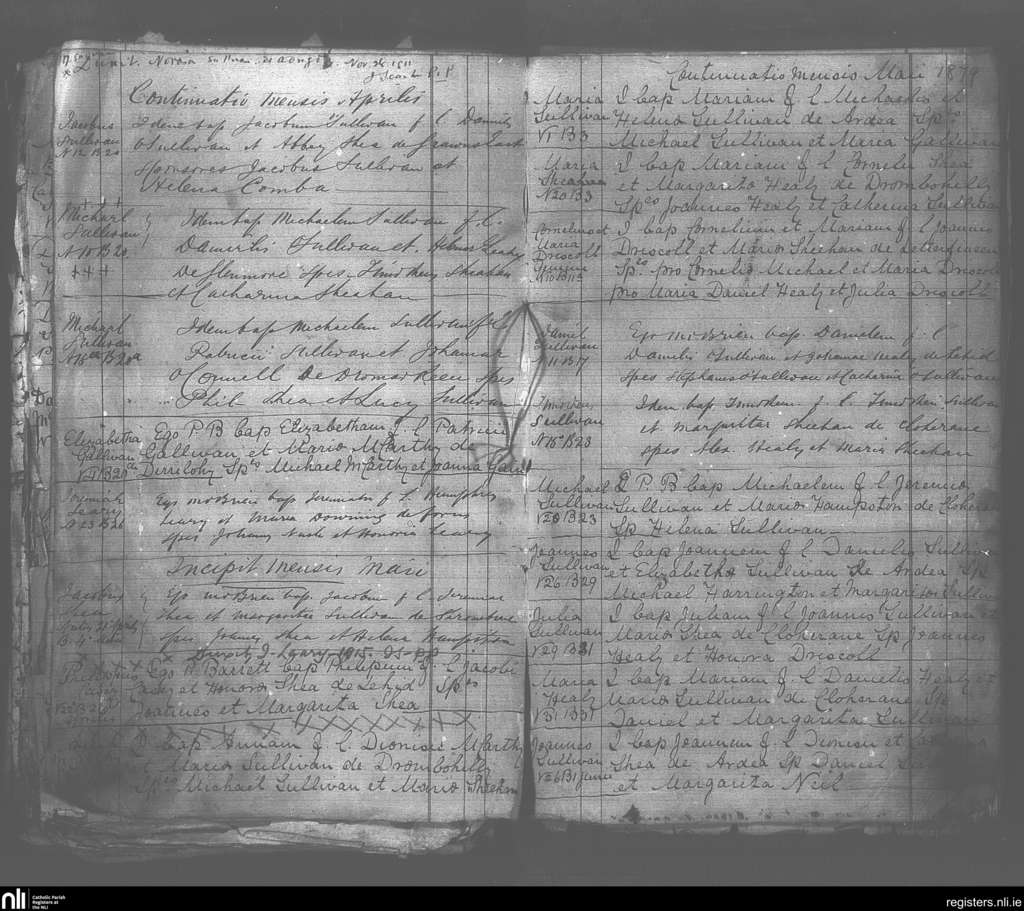 Duxit Nov 26 1911
Continuatio mensis Aprilis
Jacobus Sullivan N 12 B 20
Idem bap Jacobum Sullivan f. l. Danielis
O Sullivan et Abbey Shea de
sponsores Jacobus Sullivan et
Helena Comba
Michael Sullivan N 10 B 20
Idem bap Michaelem Sullivan f. l.
Danielis Sullivan et Leahy
De Glenmore Spes. Timotheus Sheehan
et Catharina Sheehan
Michael Sullivan B 20
Idem bap Michaelem Sullivan f l
Patricii Sullivan et Johannae
O Connell De Dromarkeen spes
Phil Shea et Lucy Sullivan
Elizabetha Gallivan B 20
Ego P. B bap Elizabetham f. l Patricii
Gallivan et Maria McCarthy de
Derrilohy Sps Michael McCarthy et Joanna
Jeremiah Leary N 23 B 26
Ego McBrien bap Jeremiam f l Humphry
Leary et Maria Downing de
spes Johannes et Honoria Leary
Incipit mensis Maii
Jacobus Shea
Ego McBrien bap Jacobum f l Jeremiae
Shea et Margaritae Sullivan de
spes Johannes Shea et Helena Hampston
1915
Ego A Bartlett bap Philipum f. l Jacobi
Casey et Honora Shea de Lehid Sps
Joannes et Margarita Shea
I bap Annam f. l Dionisii McCarthy
et Maria Sullivan de Drombohilly
Sps Michael Sullivan et Maria Sheehan
Continuatio mensis Maii 1879
Maria Sullivan N 1 B 3
I bap Mariam f. l Michaelis et
Helena Sullivan de Ardea Sps
Michael Sullivan et Maria Gallivan
Maria Shea N 20 B 3
I bap Mariam f. l Cornelii Shea
et Margarita Healy de Drombohilly
Sps Joannes Healy et Catherina Sullivan
Cornelius et Maria Driscoll
I bap Cornelium et Mariam f. l Joannis
Driscoll et Maria Sheehan de
Sps. pro Cornelio Michael et Maria Driscoll
pro Maria Daniel Healy et Julia Driscoll
Daniel Sullivan N 11 B 17
Ego McBrien bap Danielem f. l
Danielis O Sullivan et Johannae Healy de Lehid
spes Stephanus O Sullivan et Catherina O Sullivan
Sullivan N 15 B 23
Idem bap Timotheum f. l Timothei Sullivan
et Margaritae Sheehan de Cloherane
spes Healy et Maria Sheehan
Michael Sullivan N 20 B 23
I P. B bap Michaelem f l Jeremia
Sullivan et Maria Hampston de Cloherane
Sp Helena Sullivan
Joannes Sullivan N 26 B 29
I bap Joannem f. l Danielis Sullivan
et Elizabetha Sullivan de Ardea Sp
Michael Harrington et Margarita Sullivan
Julia Sullivan N 29 B 31
I bap Juliam f. l Joannis Sullivan et
Maria Shea de Cloherane Sp Joannes
Healy et Honora Driscoll
Maria Healy N 31 B 31
I bap Mariam f. l Danielis Healy et
Maria Sullivan de Cloherane Sp
Daniel et Margarita Sullivan
Joannes Sullivan
I bap Joannem f. l Dionisii et
Shea de Ardea Sp Daniel
et Margarita Neil
nli
Catholic Parish
Registers at
the NLI
registers.nli.ie